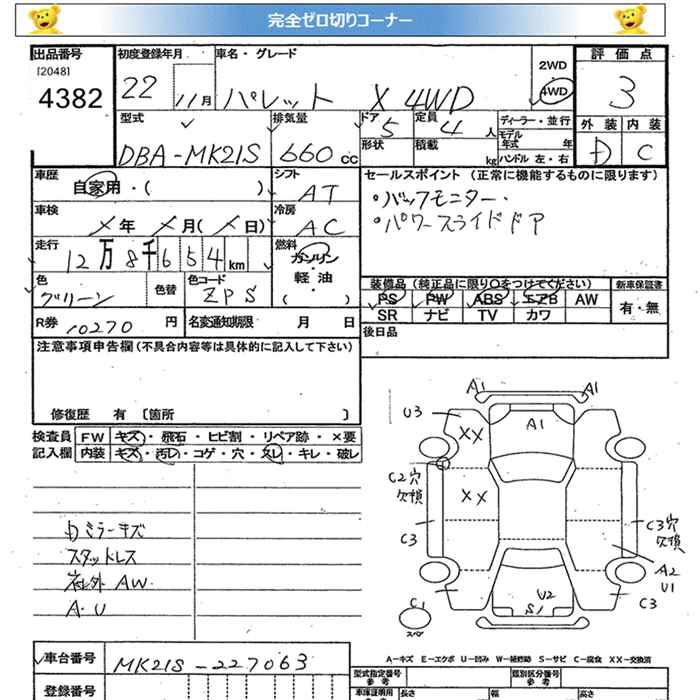 完全ゼロ切りコーナー
出品番号 初度登録年月 車名・グレード 2WD 評価点
[2048] 4382 22 11月 パレット X 4WD 4WD 3
型式 排気量 ドア 5 定員 4人 ディーラー・並行 外装 内装
DBA-MK21S 660cc 形状 積載 kg モデル年式 年 C
ハンドル 左・右
車歴 シフト セールスポイント (正常に機能するものに限ります)
自家用・( ) AT ・バックモニター・
車検 冷房 ・パワースライドドア
メ年 メ月(メ日) AC
走行 燃料
12万8千654km ガソリン・軽油・( )
色 色替 色コード 装備品(純正品に限り○をつけてください) 新車保証書
グリーン ZPS PS PW ABS エアB AW 有・無
R券 10270円 名変通知期限 月 日 SR ナビ TV カワ
注意事項申告欄(不具合内容等は具体的に記入して下さい) 後日品
修復歴 有〔箇所 〕
検査員 FW キズ・飛石・ヒビ割・リペア跡・×要
記入欄 内装 キズ・汚レ・コゲ・穴・スレ・キレ・破レ
A1 A1
U3 XX A1
C2穴欠損 XX
C3 C3穴欠損
A2
U1
C1 U2 S1 C3
スペア
ミラーキズ
スタットレス
社外AW
A・U
車台番号 MK21S-227063
登録番号
A-キズ E-エクボ U-凹み W-補修跡 S-サビ C-腐食 XX-交換済
型式指定番号 参考 類別区分番号 参考
車庫証明用 長さ 幅 高さ